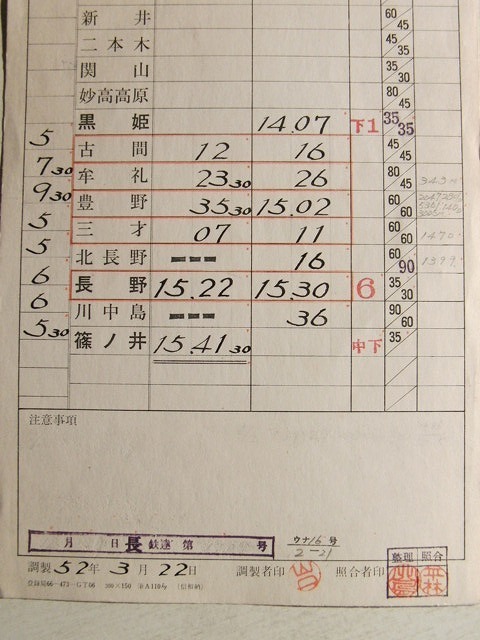 新井 60 45
二本木 45 35
関山 35 30
妙高高原 80 45
黒姫 14.07 下1 35 35
5 古間 12 16 45 45
7 30 牟礼 23 30 26 80 45
9 30 豊野 35 30 15.02 60 60
5 三才 07 11 60 60
5 北長野 16 60 90
6 長野 15.22 15.30 6 35 30
6 川中島 36 90 60
5 30 篠ノ井 15.41 30 中下 35
注意事項
月 日 長鉄運 第 号
ウナ16号
2-21
調製 52年 3月 22日 調製者印 照合者印
整理 照合